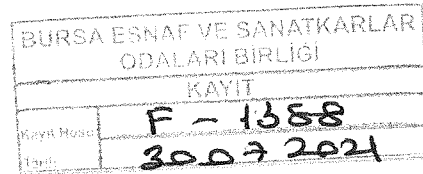 BURSA ESNAF VE SANATKARLAR
ODALARI BİRLİĞİ
KAYIT
Kayıt No F - 1358
Tarih 30.07 2021